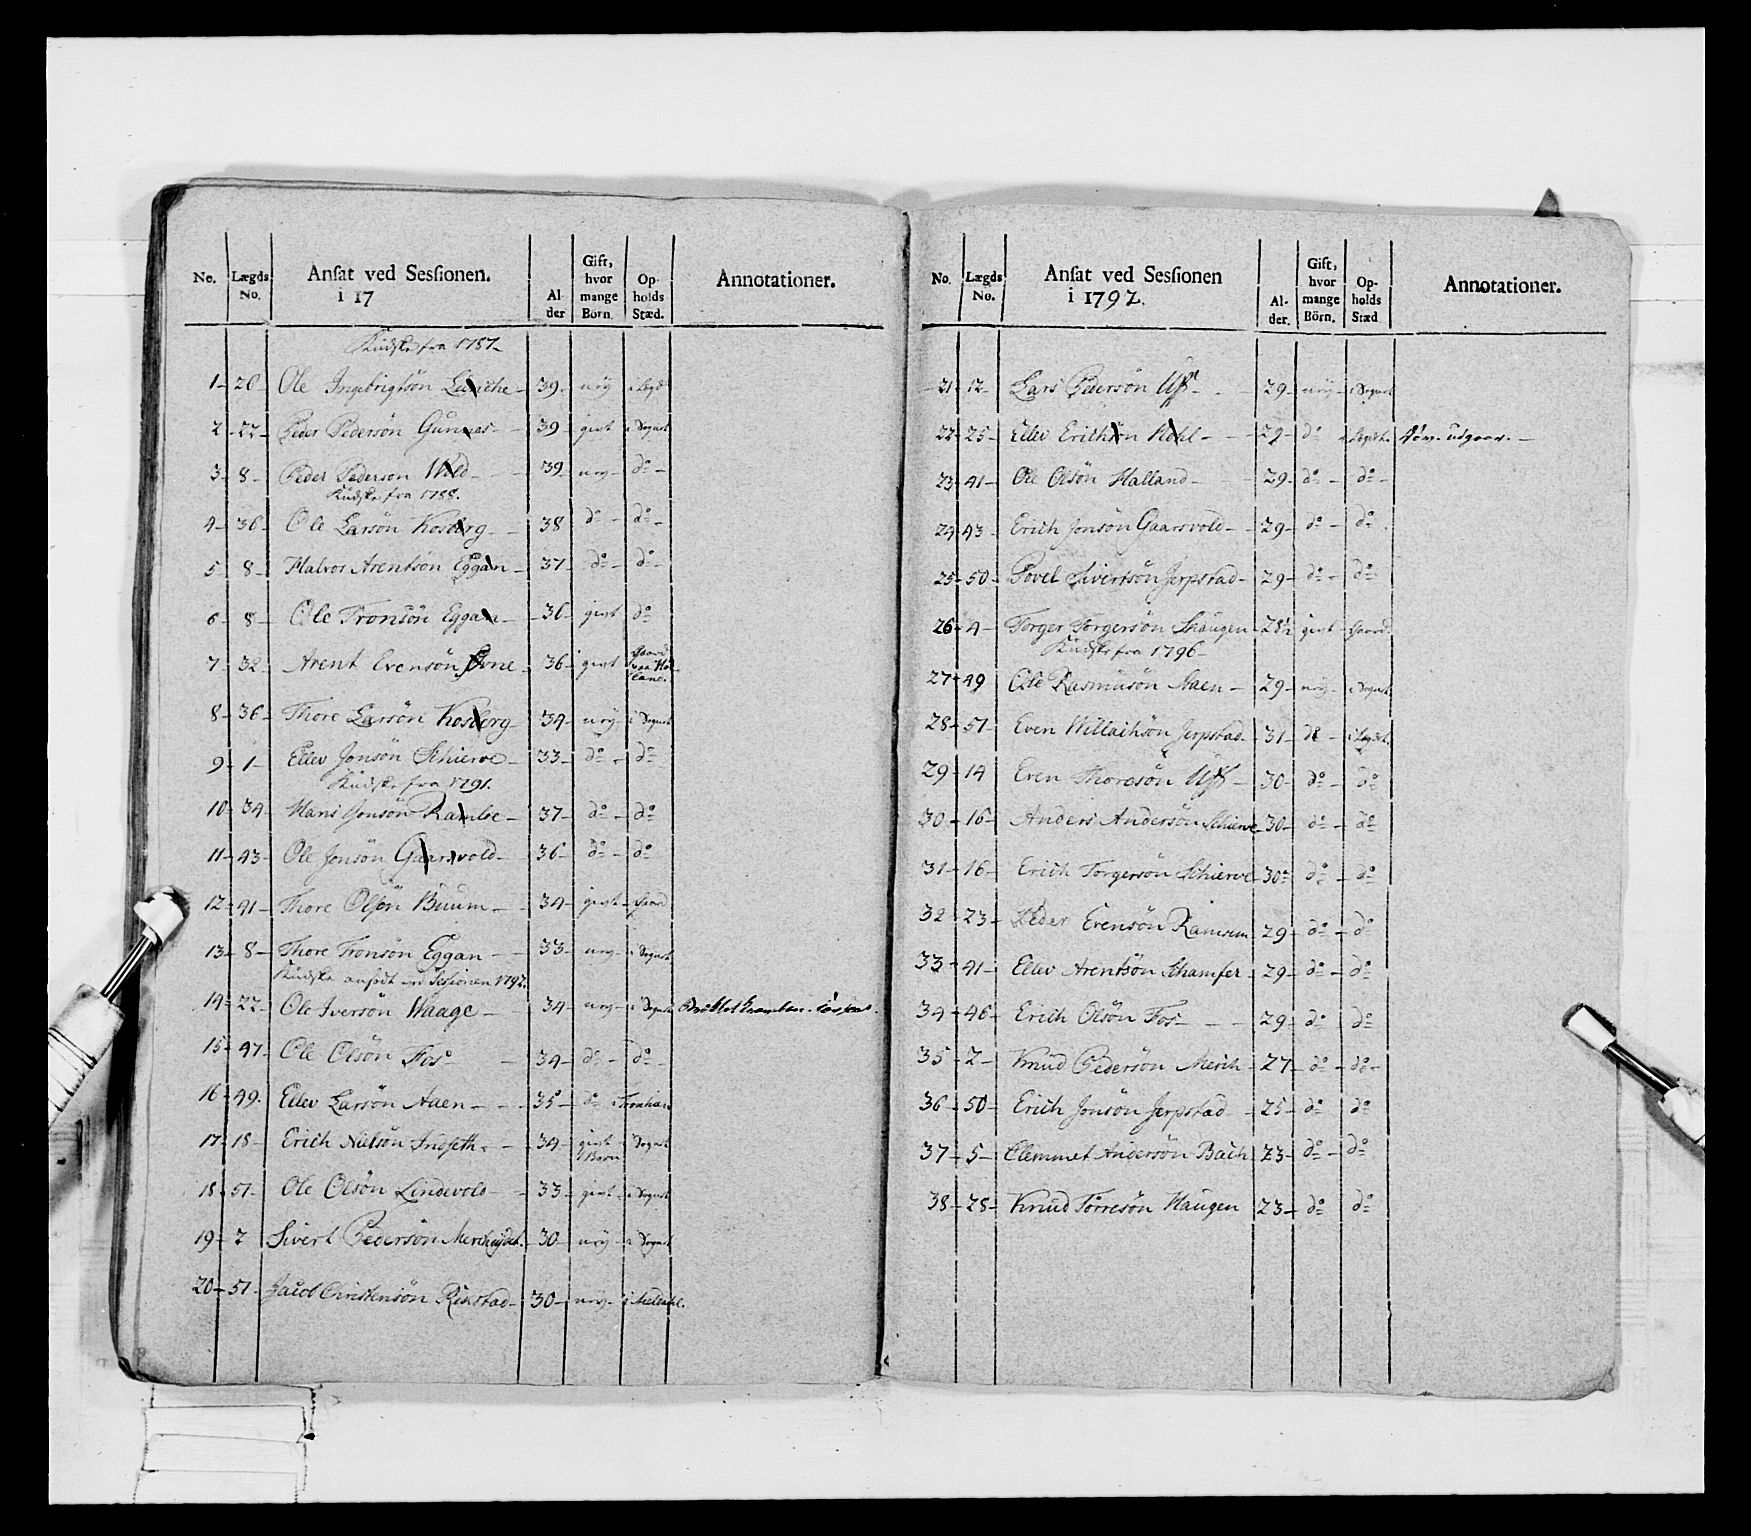 No. Lægds No. Ansat ved Sessionen. i 17 Alder Gift, hvor mange Börn. Opholds Stæd. Annotationer.
Kudske fra 1787
1 20 Ole Ingebrigtsön 39 ugy i Legd
2 22 Peder Pedersön Gunnes 39 givt i Sognet
3 8 Peder Pederson Wold 39 ugy do
Kudske fra 1788.
4 36 Ole Larsön Kosberg 38 do do
5 8 Halvor Arentsön Eggan 37 do do
6 8 Ole Tronsön Eggan 36 givt do
7 32 Arent Evensön 36 givt Gaard
8 36 Thore Larsön Kosberg 34 ugy i Sognet
9 1 Ellev Jonsön Schierve 33 do do
Kudske fra 1791.
10 34 Hans Jonsön Ramloe 37 do do
11 43 Ole Jonsön Gaarsvold 36 do do
12 41 Thore Olsön Buum 34 givt Gaard
13 8 Thore Tronsön Eggan 33 ugy i Sognet
Kudske ansadt ved Sessionen 1792.
14 22 Ole Iversön Waage 34 ugy i Sognet
15 47 Ole Olsön Fos 34 do do
16 49. Ellev Larsön Aaen 35 do
17 18 Erich Nielsön Indseth 34 givt Börn i Sognet
18 51 Ole Olsön Lindevold 33 givt i Sognet
19 2 Sivert Pedersön 30 ugy i Sognet
20 51 Jacob Christensön Rikstad 30 ugy i Meldahl.
No. Lægds No. Ansat ved Sessionen i 1792. Alder. Gift, hvor mange Börn. Opholds Stæd Annotationer.
21 12 Lars Pedersön Uf 29 ugy i Sognet
22 25 Ellev Erichsön Hohl 29 do i Legdet. udgaar.
23 41 Ole Olsön Halland 29 do do
24 43 Erich Jonsön Gaarsvold 29 do do
25 50 Povel Sivertsön Jerpstad 29 do do
26 4 Torger Torgersön Skaugen 28½ givt Gaard.
Kudske fra 1796
27 49 Ole Rasmusön Aaen 29 ugy i Sognet
28 51 Even Jerpstad 31 do i Legdet.
29 14 Even Thoresön Uf 30 do do
30 16 Anders Andersön Schierve 30 do do
31 16 Erich Torgersön Schierve 30 do do
32 23 Peder Evensön Ramsem 29 do do
33 41 Ellev Arentsön Schamfer 29 do do
34 46 Erich Olsön Fos 29 do do
35 2 Knud Pedersön Merch 27 do do
36 50 Erich Jonsön Jerpstad 25 do do
37 5 Clemmet Andersön Bach 23 do do
38 28 Knud Torresön Haugen 23 do do